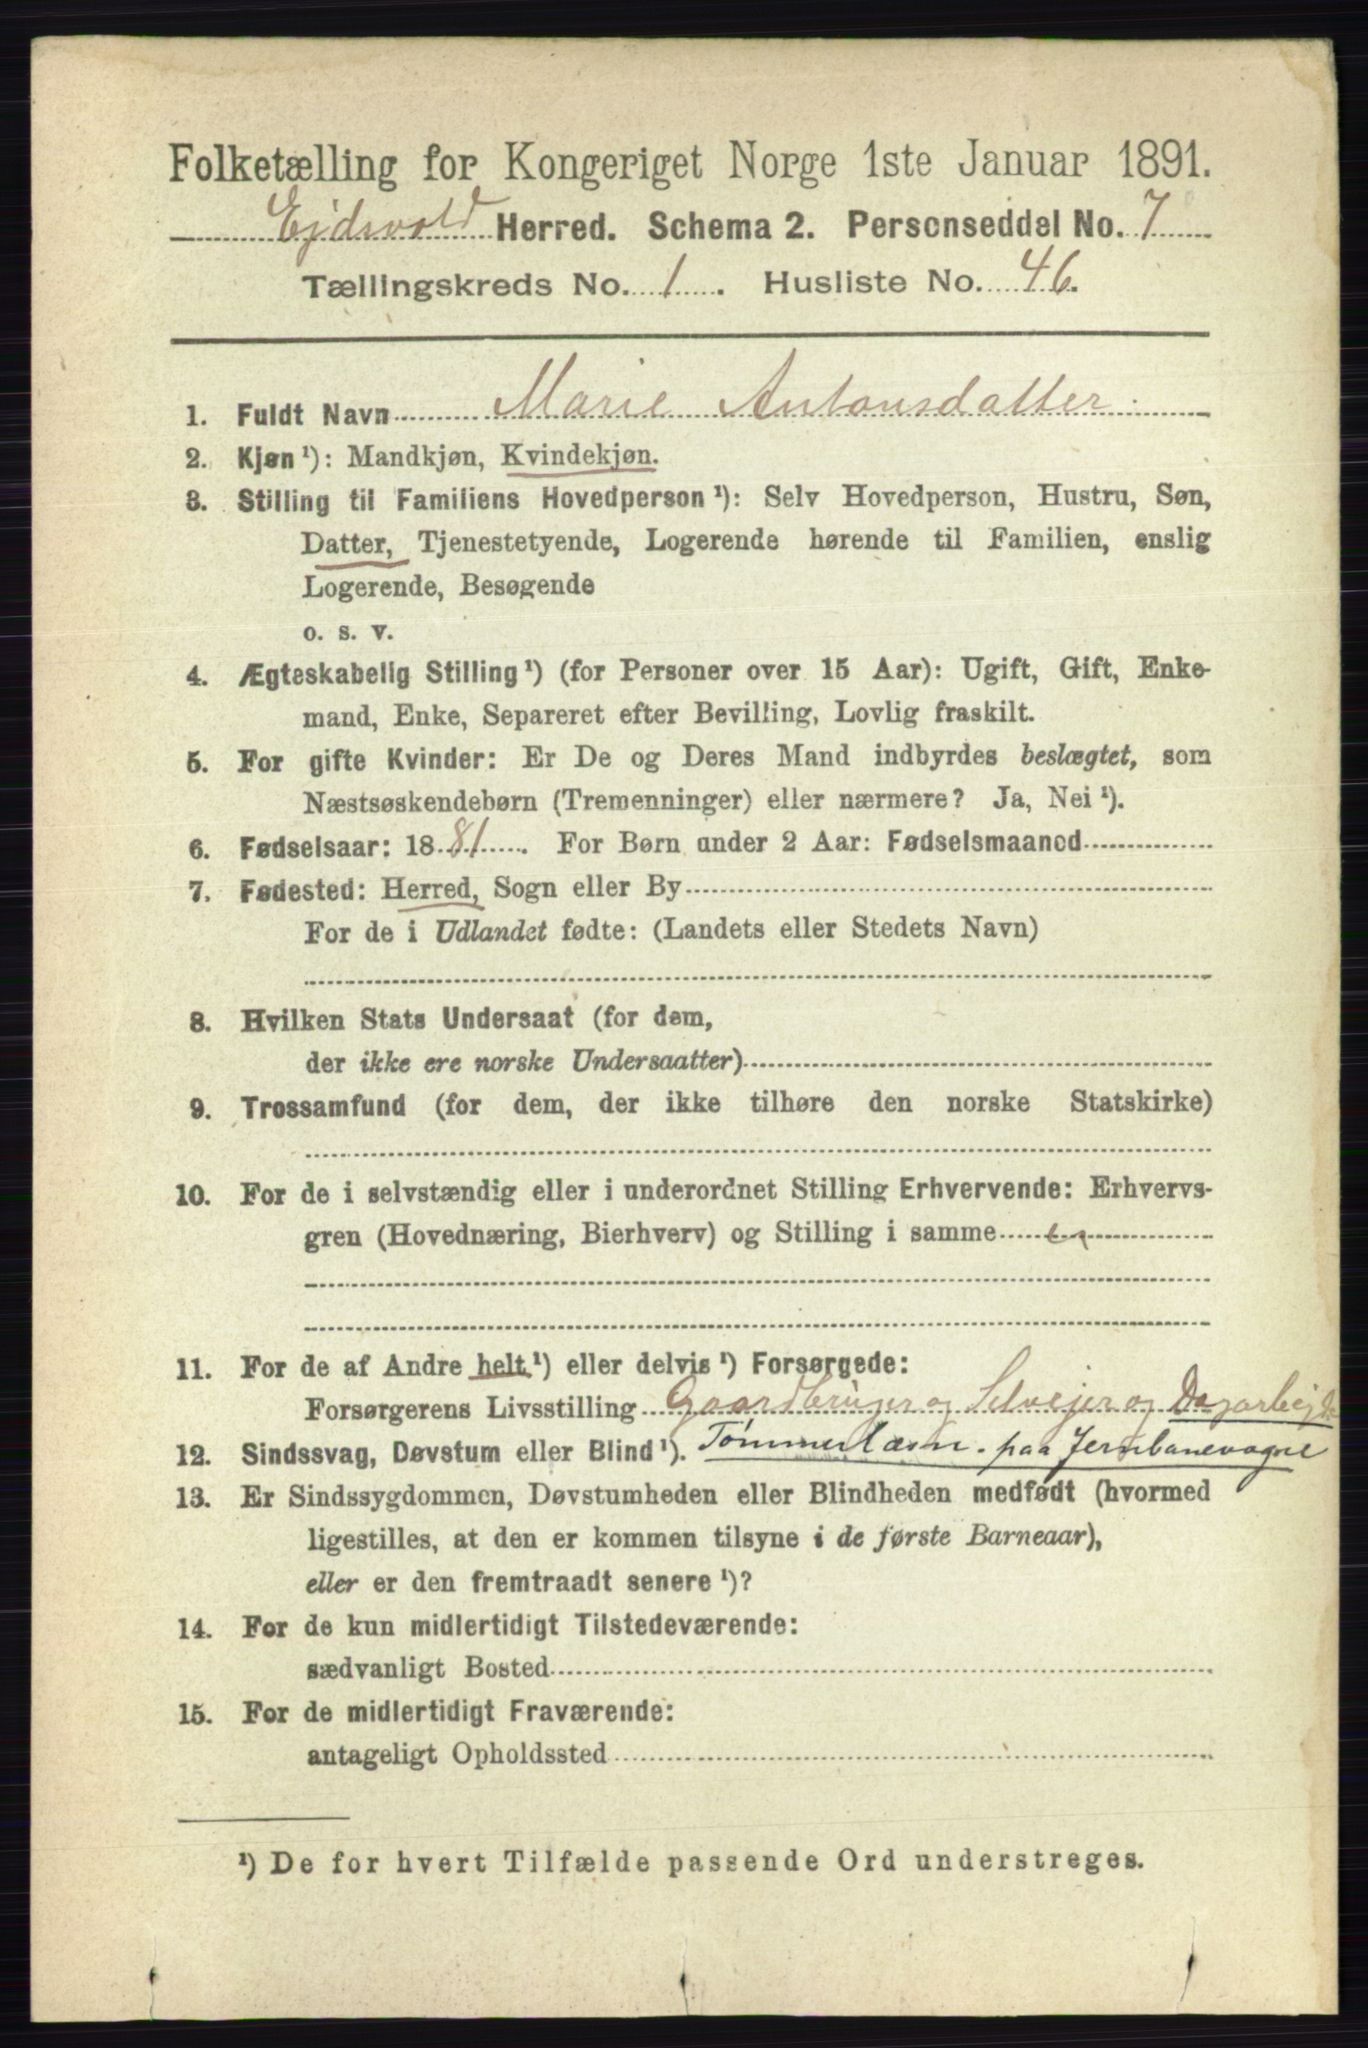 Folketælling for Kongeriget Norge 1ste Januar 1891.
Ejdsvold Herred. Schema 2. Personseddel No. 7
Tællingskreds No. 1. Husliste No. 46.
1. Fuldt Navn Marie Antonsdatter
2. Kjøn ¹): Mandkjøn, Kvindekjøn.
3. Stilling til Familiens Hovedperson ¹): Selv Hovedperson, Hustru, Søn,
Datter, Tjenestetyende, Logerende hørende til Familien, enslig
Logerende, Besøgende
o. s. v.
4. Ægteskabelig Stilling ¹) (for Personer over 15 Aar): Ugift, Gift, Enke-
mand, Enke, Separeret efter Bevilling, Lovlig fraskilt.
5. For gifte Kvinder: Er De og Deres Mand indbyrdes beslægtet, som
Næstsøskendebørn (Tremenninger) eller nærmere? Ja, Nei ¹).
6. Fødselsaar: 1881. For Børn under 2 Aar: Fødselsmaaned
7. Fødested: Herred, Sogn eller By
For de i Udlandet fødte: (Landets eller Stedets Navn)
8. Hvilken Stats Undersaat (for dem,
der ikke ere norske Undersaatter)
9. Trossamfund (for dem, der ikke tilhøre den norske Statskirke)
10. For de i selvstændig eller i underordnet Stilling Erhvervende: Erhvervs-
gren (Hovednæring, Bierhverv) og Stilling i samme
11. For de af Andre helt ¹) eller delvis ¹) Forsørgede:
Forsørgerens Livsstilling Gaardbruger og Selvejer og Dagarbejde
12. Sindssvag, Døvstum eller Blind ¹). Tømmerlæsn. paa Jernbanevogne
13. Er Sindssygdommen, Døvstumheden eller Blindheden medfødt (hvormed
ligestilles, at den er kommen tilsyne i de første Barneaar),
eller er den fremtraadt senere ¹)?
14. For de kun midlertidigt Tilstedeværende:
sædvanligt Bosted
15. For de midlertidigt Fraværende:
antageligt Opholdssted
¹) De for hvert Tilfælde passende Ord understreges.